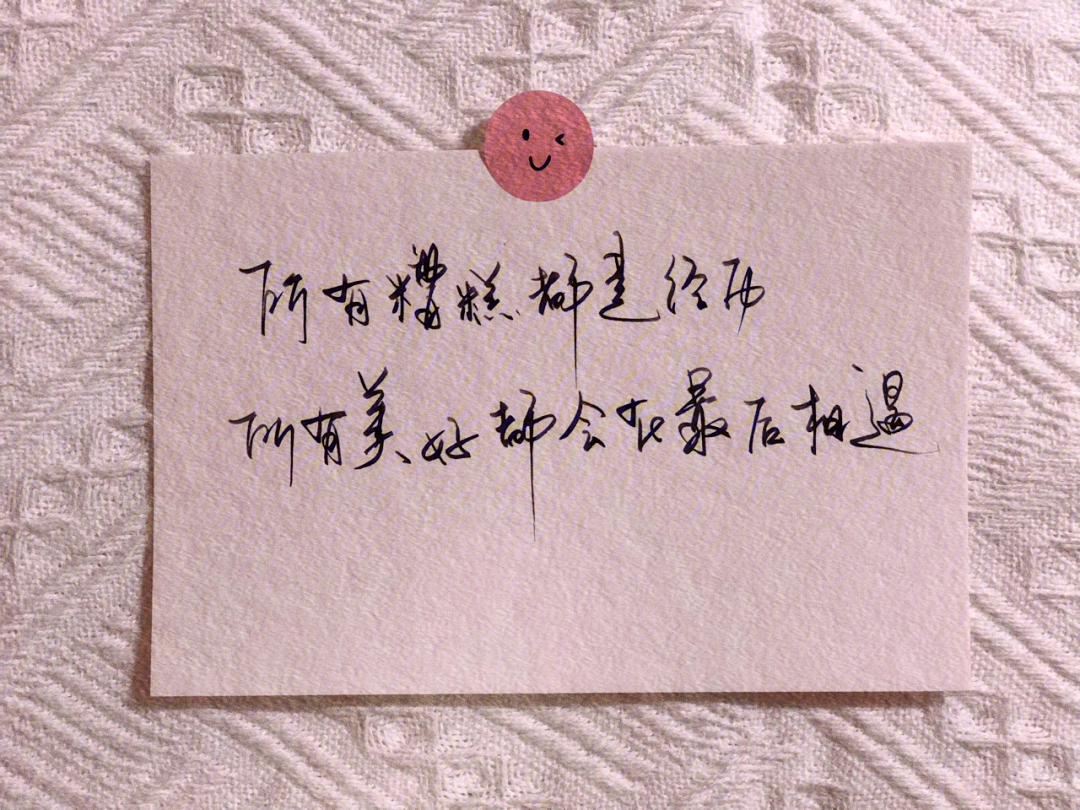 所有糟糕都是经历
所有美好都会在最后相遇